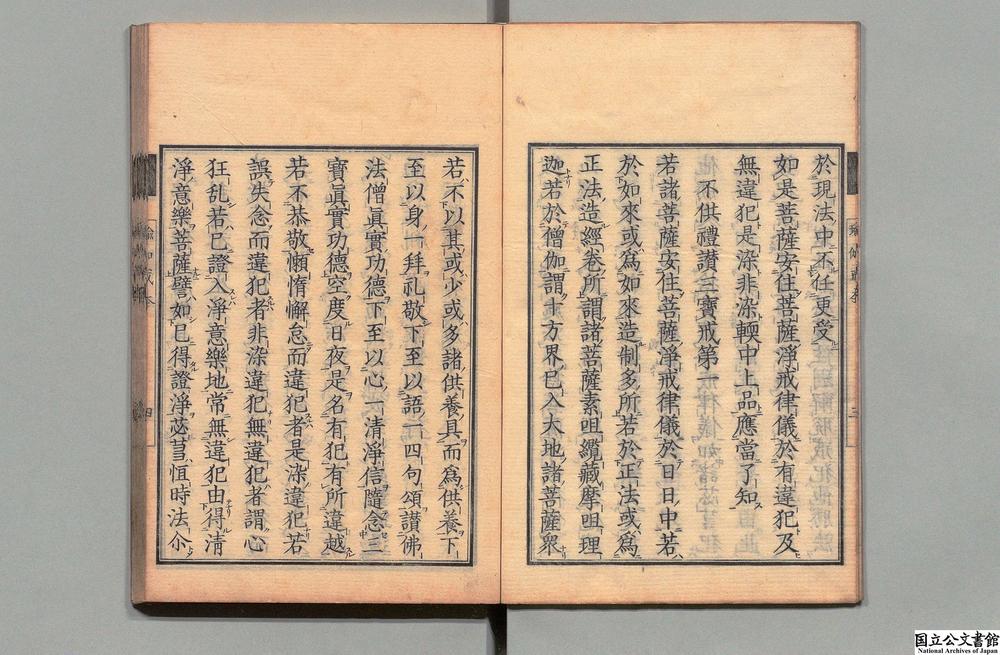 於現法中不任更受
如是菩薩安住菩薩淨戒律儀於有違犯及
無違犯是染非染輭中上品應當了知
不供禮讃三寶戒第一
若諸菩薩安住菩薩淨戒律儀於日日中若
於如來或爲如來造制多所若於正法或爲
正法造經巻所謂諸菩薩素呾纜藏摩呾理
迦若於僧伽謂十方界已入大地諸菩薩衆
若不以其或少或多諸供養具而爲供養下
至以身一拜礼敬下至以語一四句頌讃佛
法僧眞實功德下至以心一清淨信隨念三
寶眞實功德空度日夜是名有犯有所違越
若不恭敬懶惰懈怠而違犯者是染違犯若
誤失念而違犯者非染違犯無違犯者謂心
狂乱若已證入淨意樂地常無違犯由得清
淨意樂菩薩譬如已得證淨苾蒭恒時法尒
四
国立公文書館
National Archives of Japan